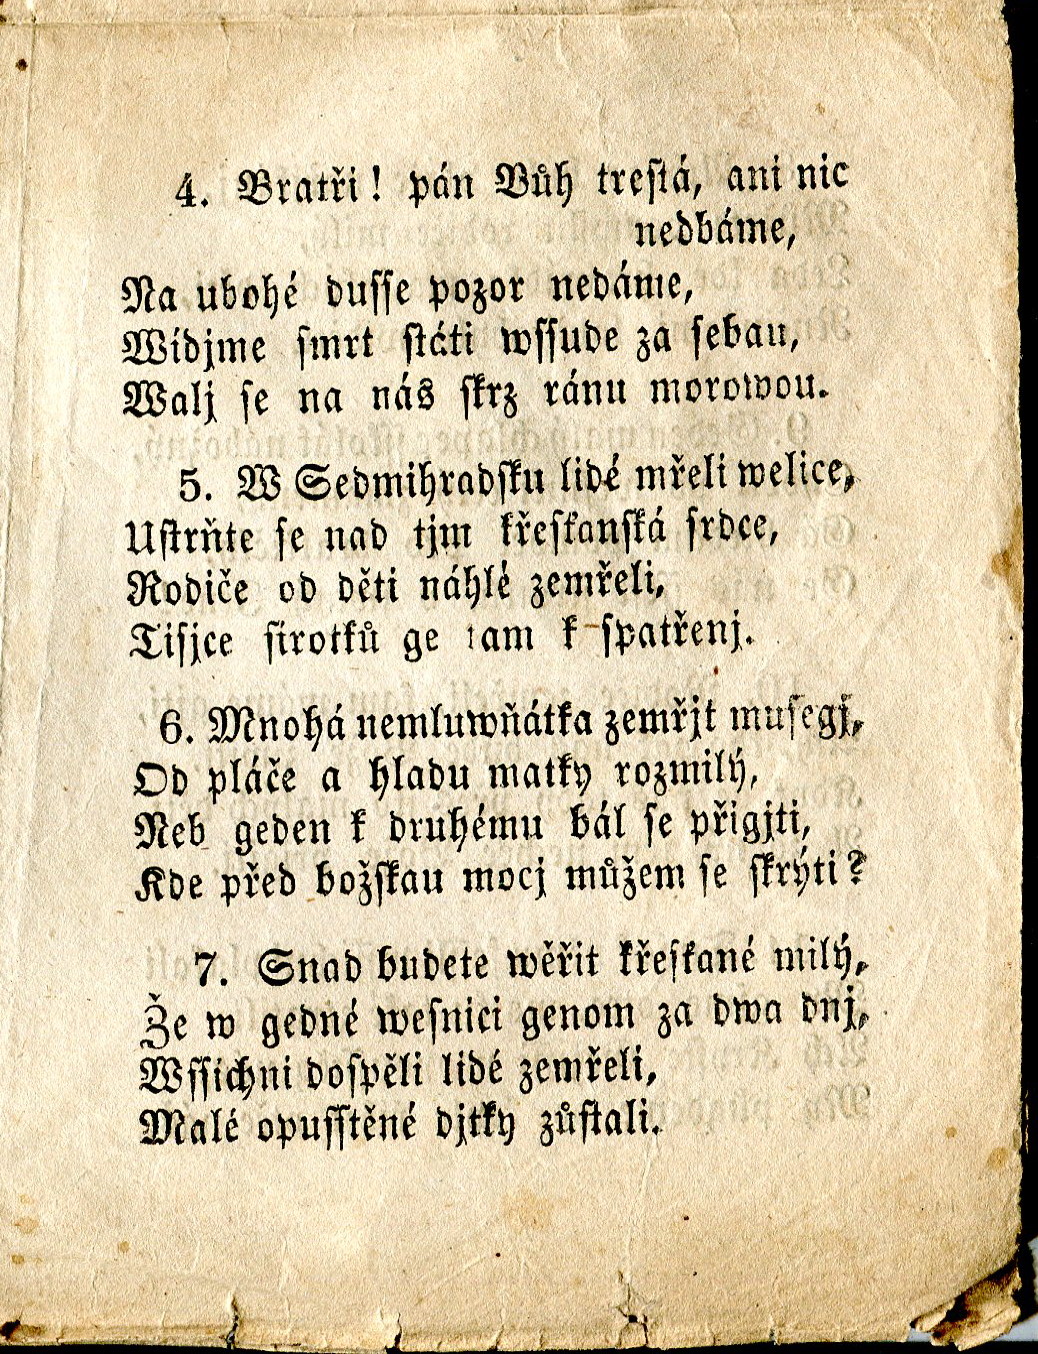 4. Bratři! pán Bůh trestá, ani nic
nedbáme,
Na ubohé dusse pozor nedáme,
Wídjme smrt státi wssude za sebau,
Walj se na nás skrz ránu morowou.
5. W Sedmihradsku lidé mřeli welice,
Ustrňte se nad tjm křeskanská srdce,
Rodiče od děti náhlé zemřeli,
Tisjce sirotků ge tam k spatřenj.
6. Mnohá nemluwňátka zemřjt musegj,
Od pláče a hladu matky rozmilý,
Neb geden k druhému bál se přigjti,
Kde před božskau mocj můžem se skrýti?
7. Snad budete wěřit křeskané milý,
Že w gedné wesnici genom za dwa dnj,
Wssichni dospěli lidé zemřeli,
Malé opusstěné djtky zůstali.